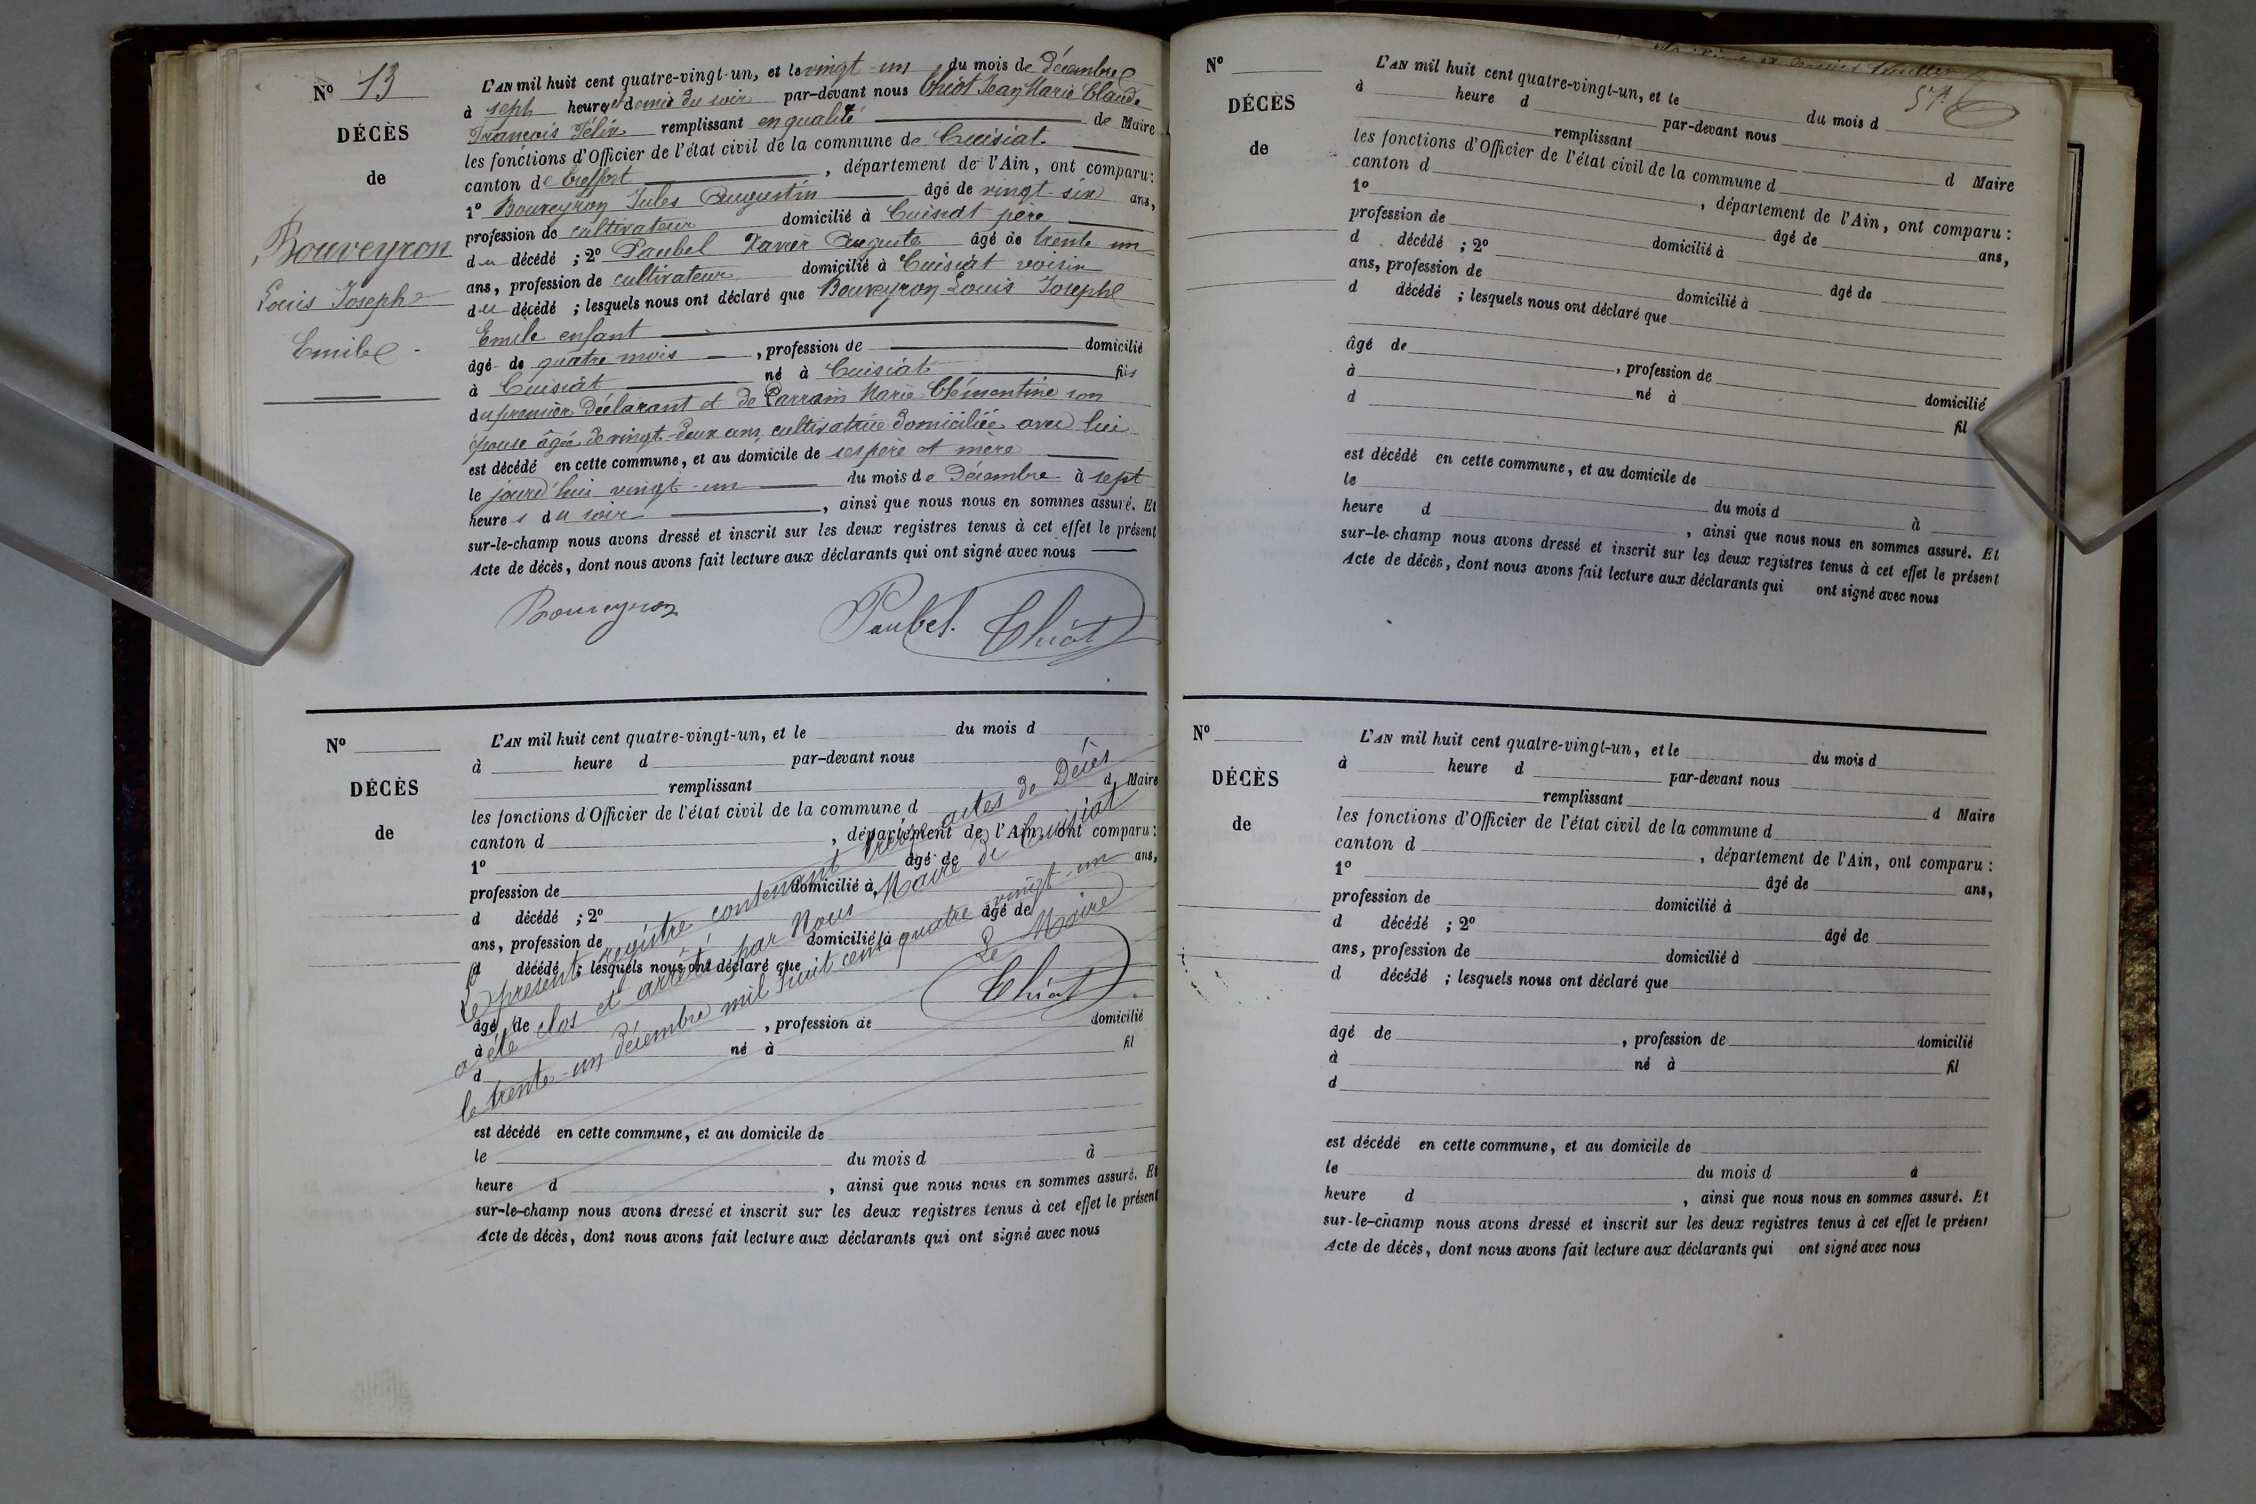 No 13
DÉCÈS
de
Bouveyron
Louis Joseph
Emile
L'AN mil huit cent quatre-vingt-un, et le vingt-un du mois de décembre
à sept heures et demie du soir par-devant nous Chicot Jean Marie Claude
François Félix remplissant en qualité de Maire
les fonctions d'Officier de l'état civil de la commune de Cuisiat
canton de Treffort, département de l'Ain, ont comparu:
1o Bouveyron Jules Augustin âgé de vingt-six ans,
profession de cultivateur domicilié à Cuisiat père
du décédé ; 2o Paubel Xavier Auguste âgé de trente un
ans, profession de cultivateur domicilié à Cuisiat voisin
du décédé ; lesquels nous ont déclaré que Bouveyron Louis Joseph
Emile enfant
âgé de quatre mois, profession de domicilié
à Cuisiat né à Cuisiat fils
du premier déclarant et de Parrain Marie Clémentine son
épouse âgée de vingt-deux ans, cultivatrice domiciliée avec lui
est décédé en cette commune, et au domicile de ses père et mère
le jourd'hui vingt-un du mois de Décembre à sept
heures du soir, ainsi que nous nous en sommes assuré. Et
sur-le-champ nous avons dressé et inscrit sur les deux registres tenus à cet effet le présent
Acte de décès, dont nous avons fait lecture aux déclarants qui ont signé avec nous
Bouveyron Paubel. Chicot
No
DÉCÈS
de
L'AN mil huit cent quatre-vingt-un, et le du mois d
à heure d par-devant nous
remplissant d Maire
les fonctions d'Officier de l'état civil de la commune d
canton d , département de l'Ain, ont comparu:
1o âgé de ans,
profession de domicilié à
d décédé ; 2o âgé de
ans, profession de domicilié à
d décédé ; lesquels nous ont déclaré que
âgé de , profession de domicilié
à né à fil
d
est décédé en cette commune, et au domicile de
le du mois d à
heure d , ainsi que nous nous en sommes assuré. Et
sur-le-champ nous avons dressé et inscrit sur les deux registres tenus à cet effet le présent
Acte de décès, dont nous avons fait lecture aux déclarants qui ont signé avec nous
Le présent registre contenant treize actes de Décès
a été clos et arrêté par Nous Maire de Cuisiat
le trente-un décembre mil huit cent quatre vingt-un
Le Maire
Chicot
No
DÉCÈS
de
L'AN mil huit cent quatre-vingt-un, et le du mois d
à heure d par-devant nous
remplissant d Maire
les fonctions d'Officier de l'état civil de la commune d
canton d , département de l'Ain, ont comparu :
1o âgé de ans,
profession de domicilié à
d décédé ; 2o âgé de
ans, profession de domicilié à
d décédé ; lesquels nous ont déclaré que
âgé de , profession de domicilié
à né à fil
d
est décédé en cette commune, et au domicile de
le du mois d à
heure d , ainsi que nous nous en sommes assuré. Et
sur-le-champ nous avons dressé et inscrit sur les deux registres tenus à cet effet le présent
Acte de décès, dont nous avons fait lecture aux déclarants qui ont signé avec nous
No
DÉCÈS
de
L'AN mil huit cent quatre-vingt-un, et le du mois d
à heure d par-devant nous
remplissant d Maire
les fonctions d'Officier de l'état civil de la commune d
canton d , département de l'Ain, ont comparu :
1o âgé de ans,
profession de domicilié à
d décédé ; 2o âgé de
ans, profession de domicilié à
d décédé ; lesquels nous ont déclaré que
âgé de , profession de domicilié
à né à fil
d
est décédé en cette commune, et au domicile de
le du mois d à
heure d , ainsi que nous nous en sommes assuré. Et
sur-le-champ nous avons dressé et inscrit sur les deux registres tenus à cet effet le présent
Acte de décès, dont nous avons fait lecture aux déclarants qui ont signé avec nous